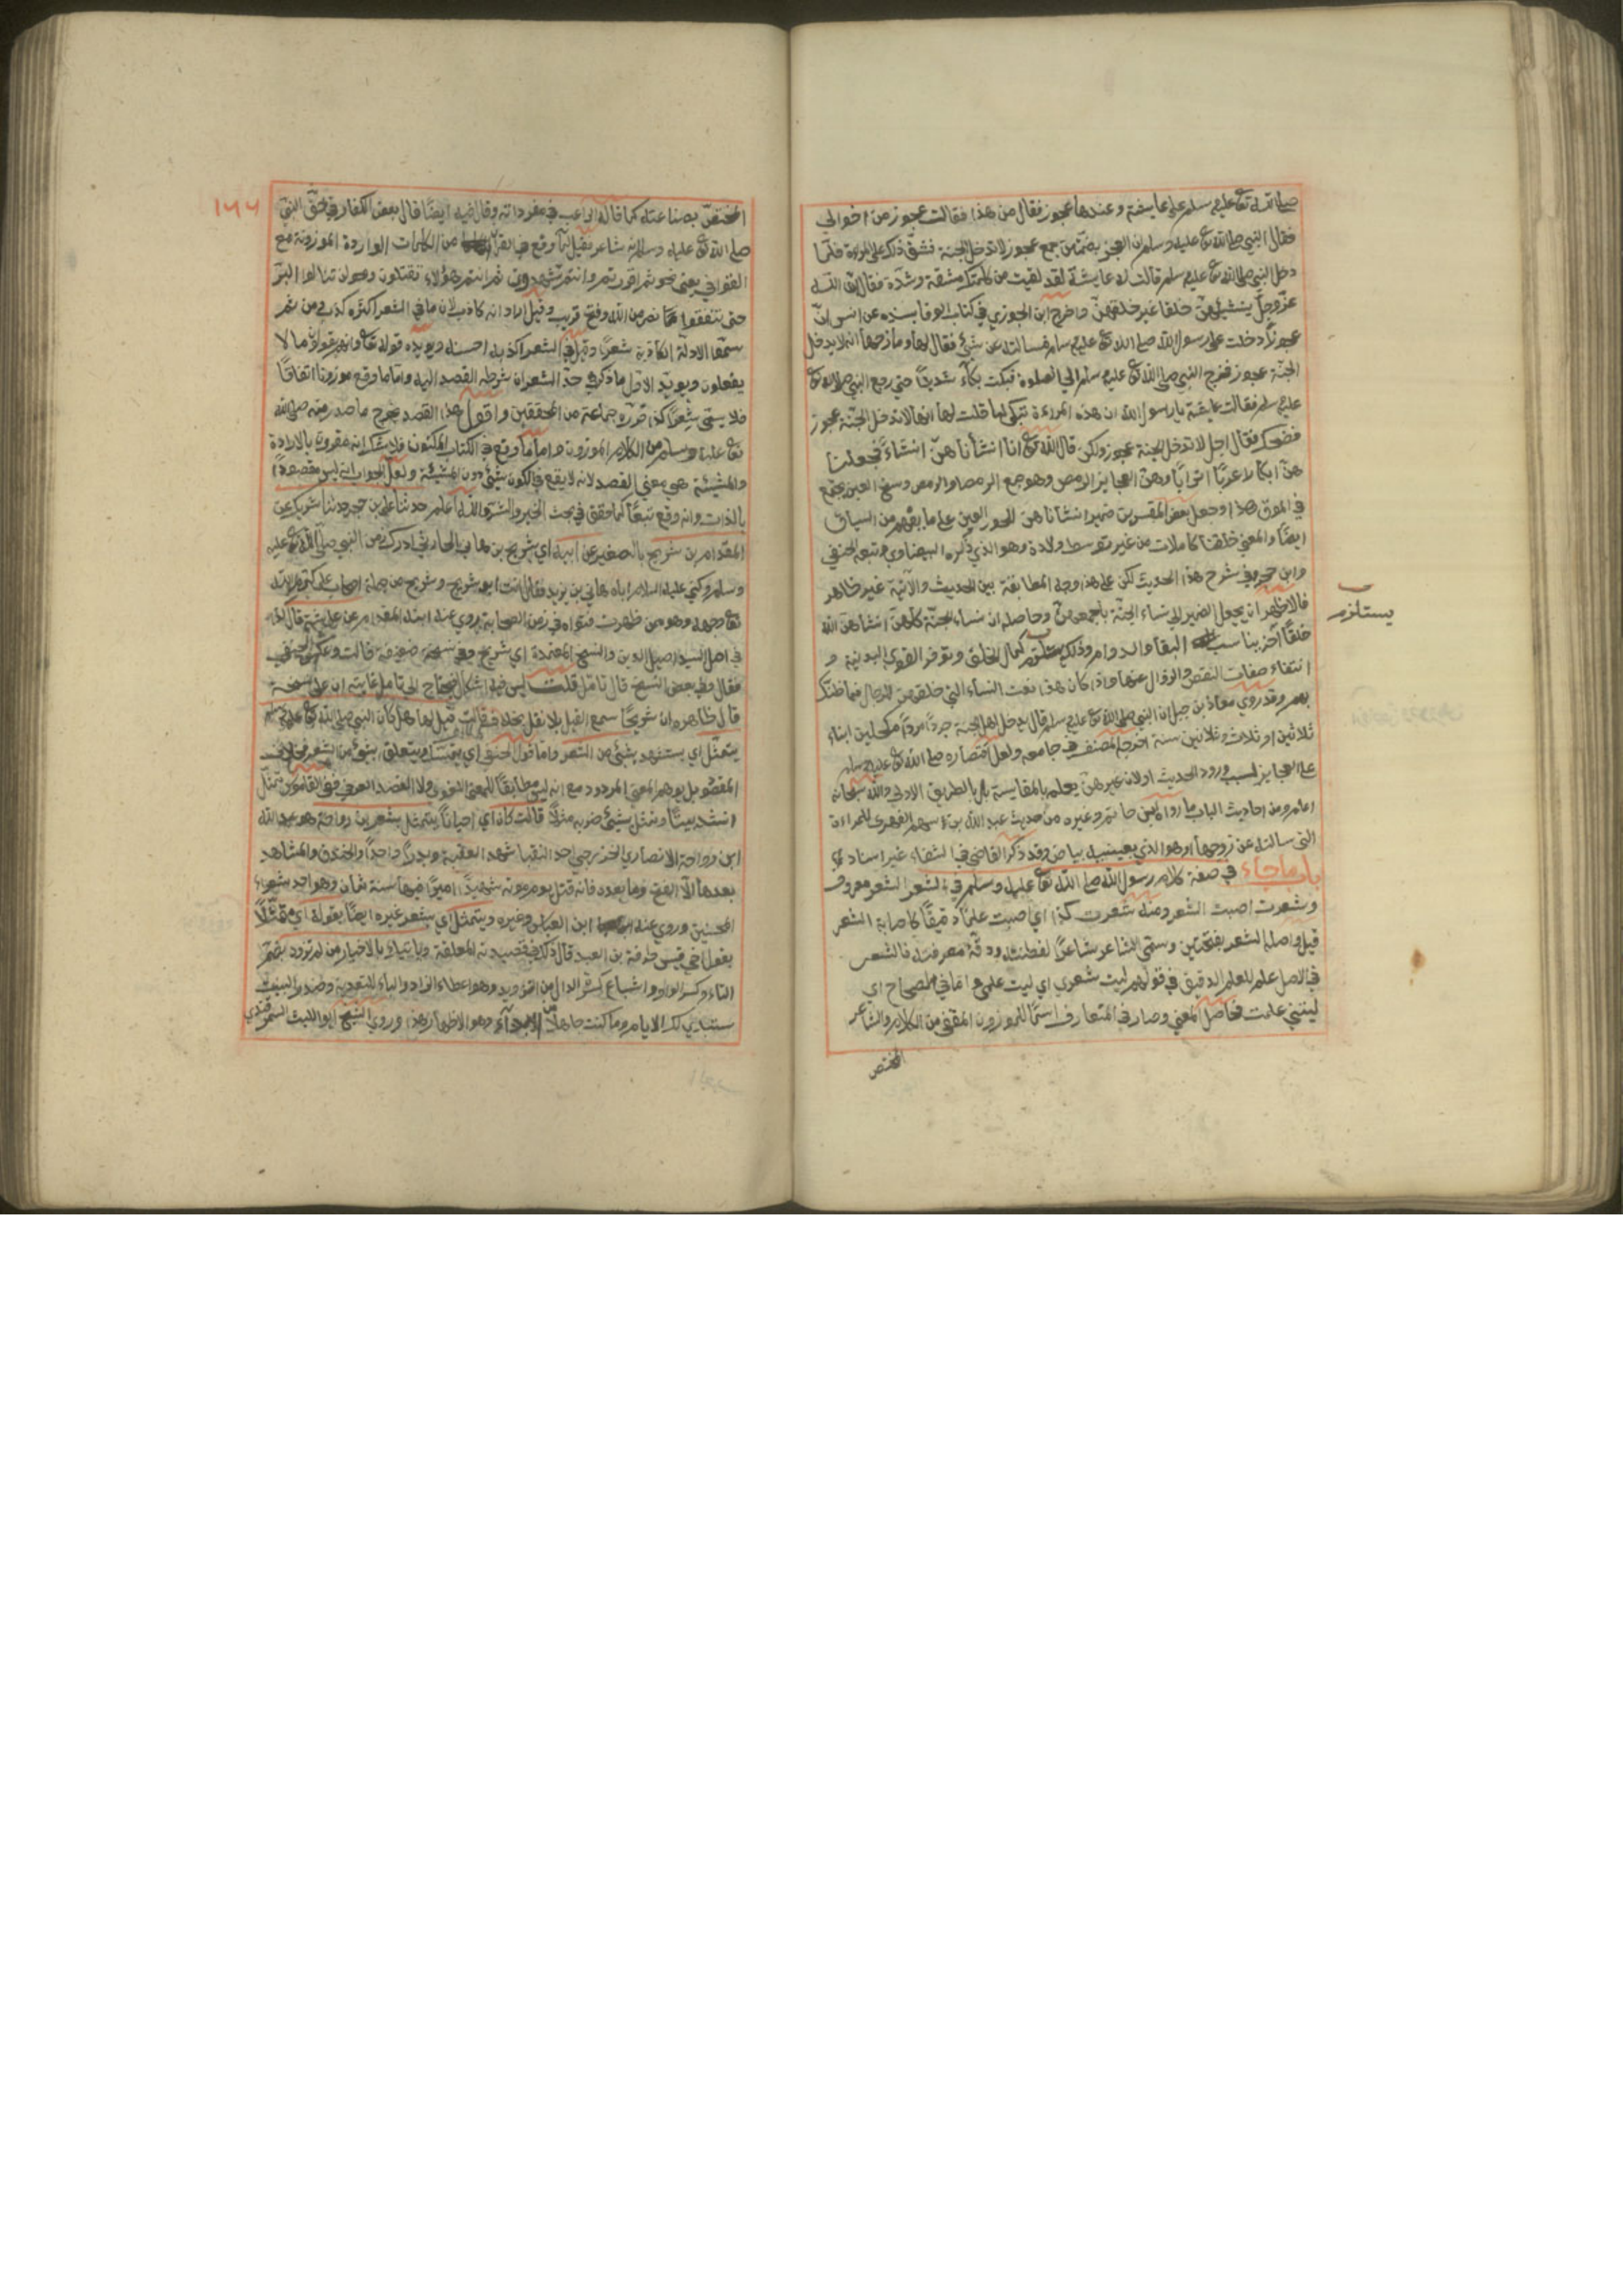 صلي الله تع عليه وسلم علي عايشة وعندها عجوز فقال من هذا فقالت عجوز من اخوالي
فقال النبي صلي الله تع عليه وسلم ان العجز بضمتين جمع عجوز لا تدخل الجنة فشق ذلك علي المرءة فلما
دخل النبي صلي الله تع عليه وسلم قالت له عايشة لقد لقيت من كلمتك مشقة وشدة فقال ان الله
عز وجل ينشئهن خلقا غير خلقهن واخرج ابن الجوزي في كتاب الوفا بسنده عن انس ان
عجوزا دخلت علي رسول الله صلي الله تع عليه وسلم فسالته عن شيئ فقال لها ومازحها انه لا يدخل
الجنة عجوز فخرج النبي صلي الله تع عليه وسلم الي الصلوة فبكت بكاء شديدا حتي رجع النبي صلي الله تع
عليه وسلم فقالت عايشة يا رسول الله ان هذه المرءة تبكي لما قلت لها انها لا تدخل الجنة عجوز
فضحك فقال اجل لا تدخل الجنة عجوز ولكن قال الله تع انا انشأناهن انشاء فجعلنا
هن ابكارا عربا اترابا وهن العجايز الرمص وهو جمع الرمصا والرمص وسخ العين يجتمع
في الموق هذا وجعل بعض المفسرين ضمير انشأناهن للحور العين علي ما يفهم من السياق
ايضا والمعني خلقنا كاملات من غير توسط ولادة وهو الذي ذكره البيضاوي وتبعه الحنفي
وابن حجر في شرح هذا الحديث لكن علي هذا وجه المطابقة بين الحديث والآية غير ظاهر
فالاظهر ان يجعل الضمير الي نساء الجنة باجمعهن وحاصله ان نساء الجنة كلهن انشأهن الله
خلقا آخر يناسب البقا والدوام وذلك يستلزم كمال الخلق وتوفر القوي البدنية و
يستلزم
انتفاء صفات النقص والزوال عنها واذا كان هذا نعت النساء التي خلقهن للرجال فما ظنك
بهم وقد روي معاذ بن جبل ان النبي صلي الله تع عليه وسلم قال يدخل اهل الجنة جردا مردا مكحلين ابناء
ثلاثين او ثلاث وثلاثين سنة اخرجه المصنف في جامعه ولعل اقتصاره صلي الله تع عليه وسلم
علي العجايز لسبب ورود الحديث او لان غيرهن يعلم بالمقايسة بل بالطريق الاولي والله سبحانه
اعلم ومن احاديث الباب ما رواه ابن حاتم وغيره من حديث عبد الله بن سهم الفهري للمراءة
التي سالته عن زوجها اهو الذي بعينيه بياض وقد ذكر القاضي في الشفاء غير اسناد
باب ما جاء في صفة كلام رسول الله صلي الله تع عليه وسلم في الشعر الشعر معروف
وشعرت اصبت الشعر ومنه شعرت كذا اي اصبت علما دقيقا كاصابة الشعر
قيل واصله الشعر بفتحتين وسمي الشاعر شاعرا لفطنته ودقة معرفته فالشعر
في الاصل علم للعلم الدقيق في قولهم ليت شعري اي ليت علمي واما في المصحاح اي
ليتني علمت فحاصل المعني وصار في المتعارف اسما للموزون المقفي من الكلام والشاعر
المختص
١٦٦
المختص بصناعته كما قاله الراغب في مفرداته وقال فيه ايضا قال بعض الكفار في حق النبي
صلي الله تع عليه وسلم انه شاعر فقيل لما وقع في القرآن من الكلمات الواردة الموزونة مع
القوافي يعني نحو ثم اقررتم وانتم تشهدون ثم انتم هؤلاء تقتلون ونحو لن تنالوا البر
حتي تنفقوا مما نصر من الله وفتح قريب وقيل اراد انه كاذب لان ما في الشعر اكثره كذب ومن ثم
سموا الادلة الكاذبة شعرا وقيل في الشعر اكذبه احسنه ويؤيده قوله تع وانهم يقولون ما لا
يفعلون ويؤيد الاول ما ذكر في حد الشعر ان شرطه القصد اليه واما ما وقع موزونا اتفاقا
فلا يسمي شعرا كذا قرره جماعة من المحققين واقول هذا القصد يخرج ما صدر منه صلي الله
تع عليه وسلم من الكلام الموزون واما ما وقع في الكتاب المكنون فلا شك انه مقرون بالارادة
والمشيئة هي معني القصد لانه لا يقع في الكون شيئ دون المشيئة ولعل الجواب انه ليس مقصودا
بالذات وانه وقع تبعا كما حقق في بحث الخير والشر والله اعلم حدثنا علي بن حجر حدثنا شريك عن
المقدام بن شريح بالصغير عن ابيه اي شريح بن هاني الحارثي ادرك زمن النبي صلي الله تع عليه
وسلم وكني عليه السلام اباه هاني بن يزيد فقال انت ابو شريح وشريح من جملة اصحاب علي كرم الله
تع وجهه وهو ممن ظهرت فتواه في زمن الصحابة يروي عنه ابنه المقدام عن عايشة قال كذا
في اصل السيد اصيل الدين والنسخ المعتمدة اي شريح وفي نسخة ضعيفة قالت وعكس الحنفي
فقال وفي بعض النسخ قال تأمل قلت ليس فيه اشكال يحتاج الي تامل غايته ان علي نسخة
قال ظاهره ان شريحا سمع القيل بلا نقل بخلاف قالت قيل لها هل كان النبي صلي الله تع عليه وسلم
يتمثل اي يستشهد بشيئ من الشعر واما قول الحنفي اي يتمسك ويتعلق بشيئ من الشعر فخلاف
المقصود بل يوهم المعني المردود مع انه ليس مطابقا للمعني اللغوي ولا القصد العرفي ففي القاموس تمثل
انشد بيتا وتمثل بشيئ ضربه مثلا قالت كان اي احيانا يتمثل بشعر بن رواحة هو عبد الله
ابن رواحة الانصاري الخزرجي احد النقبا شهد العقبة وبدرا واحدا والخندق والمشاهد
بعدها الا الفتح وما بعده فانه قتل يوم موتة شهيدا اميرا فيها سنة ثمان وهو احد شعراء
المحسنين وروي عنه ابن العباس وغيره ويتمثل اي بشعر غيره ايضا بقوله اي متمثلا
بقول اخي قيس طرفة بن العبد قال ذلك في قصيدته المعلقة وياتيك بالاخبار من لم تزود بضم
التاء وكسر الواو واشباع كسرة الدال من التزويد وهو اعطاء الزاد والباء للتعدية وصدر البيت
ستبدي لك الايام ما كنت جاهلا من الابداء وهو الاظهار هذا وروي الشيخ ابو الليث السمرقندي